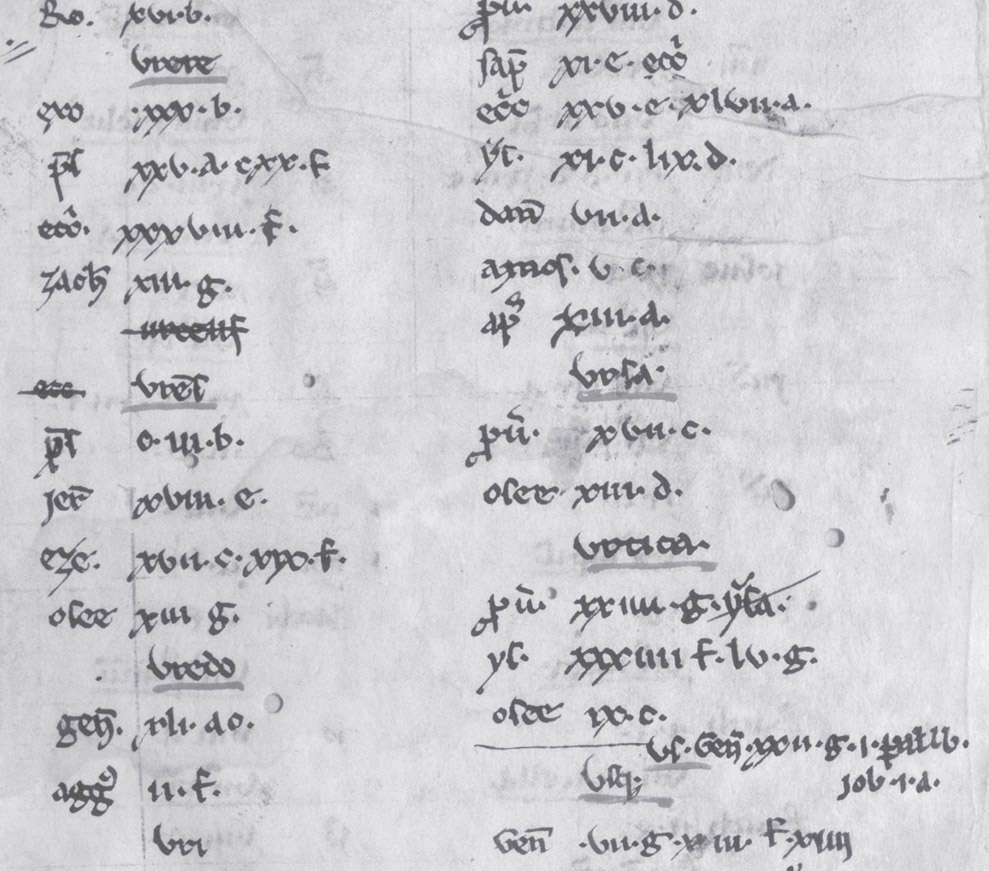 Ro. xvi.b.
Urere
exo .xxx.b.
ps xxv.a.cxx.f
eco. xxxviii.f.
zach xiii.g.
Ures
ps c.iii.b.
jer xviii.e.
eze. xvii.c.xxx.f.
osee xiii.g.
Uredo
gen. xli.ac.
agg ii.f.
Uri
pui xxviii.d.
sap xi.e.eco
eco xxv.e.xlvii.a.
ys. xi.c.lix.d.
dan vii.a.
amos.v.c.
ap xiii.a.
Ursa.
pu. xvii.c.
osee xiii.d.
Urtica.
pu. xxiiii.g.ysa.
ys. xxxiiii f.lv.g.
osee ix.c.
Us.Gen.xxii.g.i.par
Usq job.i.a.
Gen .vii.g.xiii.f.xiiii